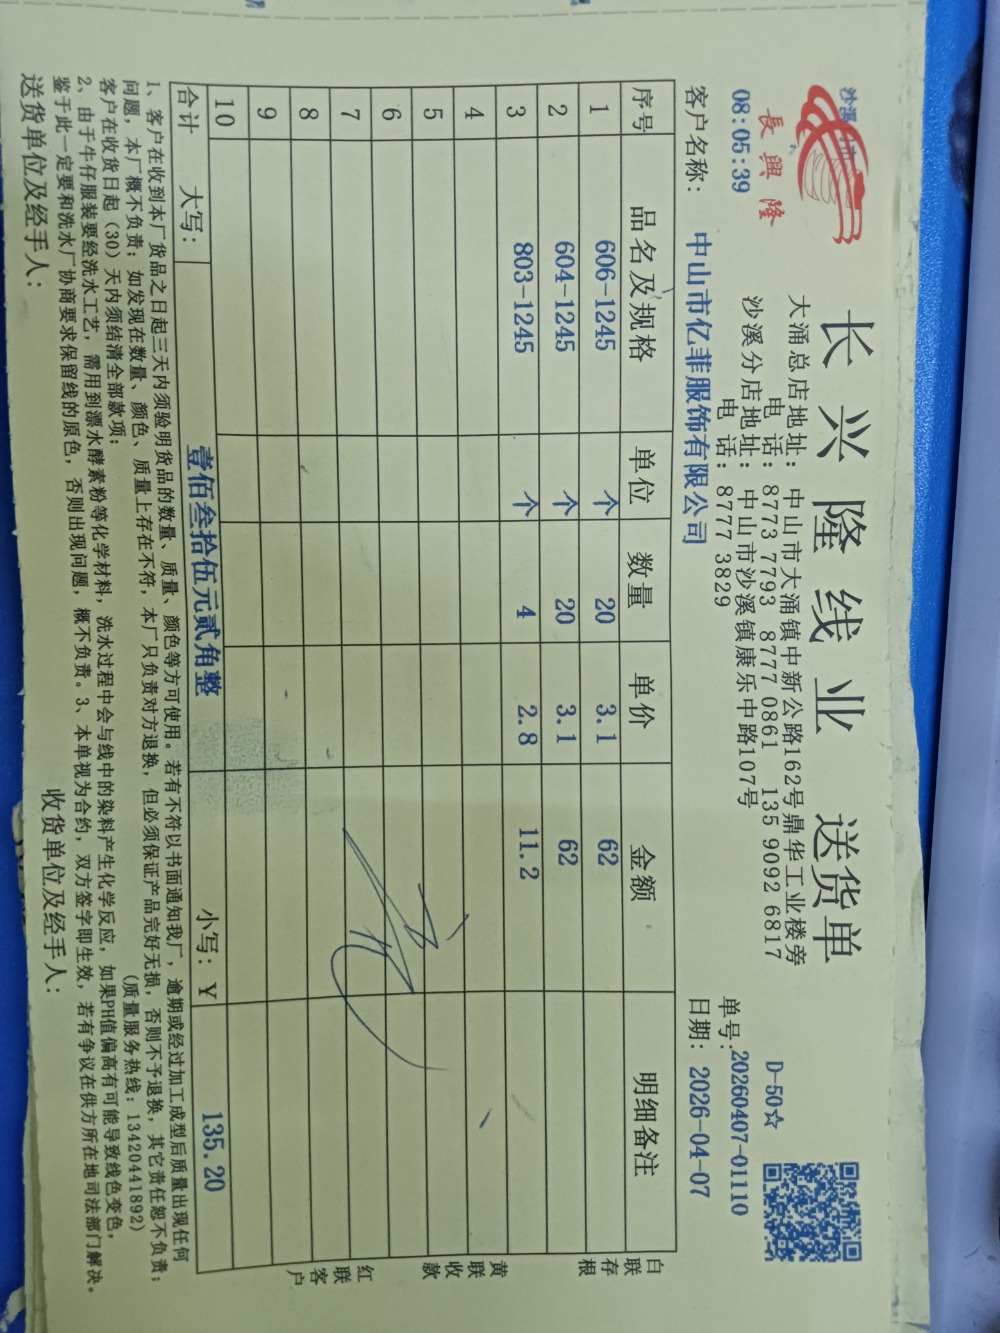 長興隆
长兴隆线业 送货单
沙溪
08:05:39
大涌总店地址：中山市大涌镇中新公路162号鼎华工业楼旁
电 话：8773 7793 8777 0861 135 9092 6817
沙溪分店地址：中山市沙溪镇康乐中路107号
电 话：8777 3829
D-50☆
单号：20260407-01110
客户名称：中山市亿菲服饰有限公司 日期：2026-04-07
序号 品名及规格 单位 数量 单价 金额 明细备注
1 606-1245 个 20 3.1 62
2 604-1245 个 20 3.1 62
3 803-1245 个 4 2.8 11.2
4
5
6
7
8
9
10
合计 大写：壹佰叁拾伍元贰角整 小写：￥ 135.20
白联存根
黄联收款
红联客户
1、客户在收到本厂货品之日起三天内须验明货品的数量、质量、颜色等方可使用。若有不符以书面通知我厂，逾期或经过加工成型后质量出现任何
问题，本厂概不负责；如发现在数量、颜色、质量上存在不符，本厂只负责对方退换，但必须保证产品完好无损，否则不予退换，其它责任恕不负责；
客户在收货日起（30）天内须结清全部款项； （质量服务热线：13420441892）
2、由于牛仔服装要经洗水工艺，需用到漂水酵素粉等化学材料，洗水过程中会与线中的染料产生化学反应，如果PH值偏高有可能导致线色变色，
鉴于此一定要和洗水厂协商要求保留线的原色，否则出现问题，概不负责。3、本单视为合约，双方签字即生效，若有争议在供方所在地司法部门解决。
送货单位及经手人： 收货单位及经手人：